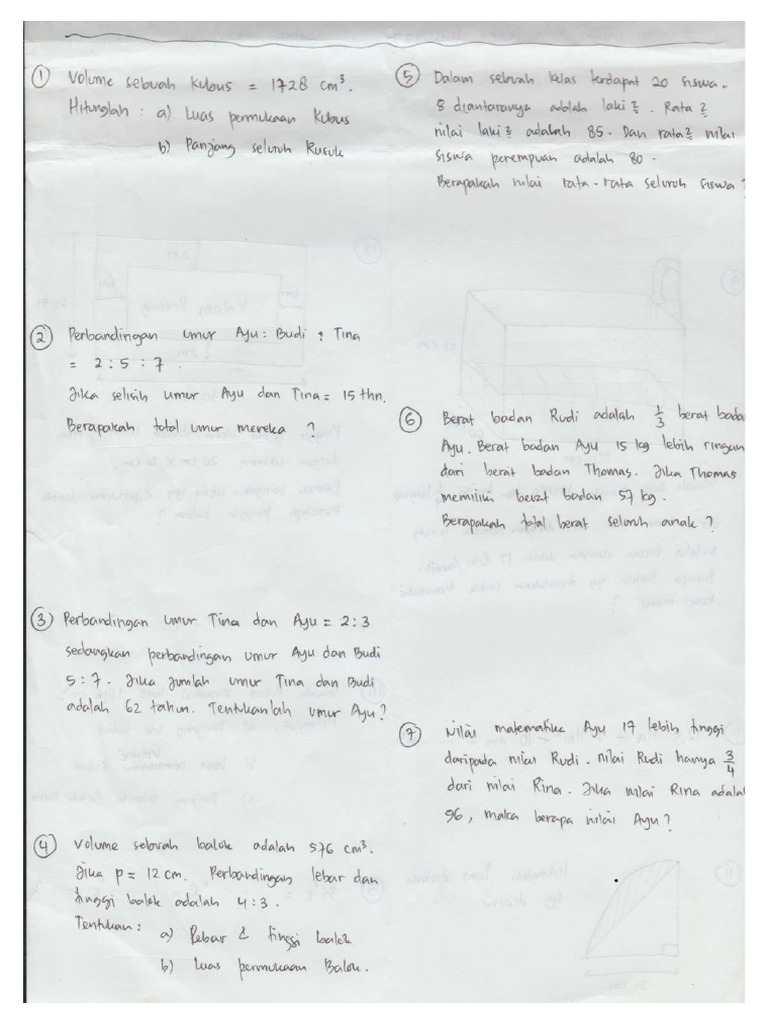 ① Volume sebuah Kubus = 1728 cm³.
Hitunglah : a) Luas permukaan Kubus
b) Panjang seluruh Rusuk
② Perbandingan umur Ayu : Budi : Tina
= 2 : 5 : 7.
Jika selisih umur Ayu dan Tina = 15 thn.
Berapakah total umur mereka ?
③ Perbandingan umur Tina dan Ayu = 2:3
sedangkan perbandingan umur Ayu dan Budi
5:7. Jika jumlah umur Tina dan Budi
adalah 62 tahun. Tentukanlah umur Ayu?
④ Volume sebuah balok adalah 576 cm³.
Jika p = 12 cm. Perbandingan lebar dan
tinggi balok adalah 4:3.
Tentukan : a) Lebar & tinggi balok
b) Luas permukaan Balok.
⑤ Dalam sebuah kelas terdapat 20 siswa.
8 diantaranya adalah laki². Rata²
nilai laki² adalah 85. Dan rata² nilai
siswa perempuan adalah 80.
Berapakah nilai rata-rata seluruh siswa ?
⑥ Berat badan Rudi adalah 1/3 berat bada
Ayu. Berat badan Ayu 15 kg lebih ringan
dari berat badan Thomas. Jika Thomas
memiliki berat badan 57 kg.
Berapakah total berat seluruh anak ?
⑦ Nilai matematika Ayu 17 lebih tinggi
daripada nilai Rudi. Nilai Rudi hanya 3/4
dari nilai Rina. Jika nilai Rina adalah
96, maka berapa nilai Ayu?